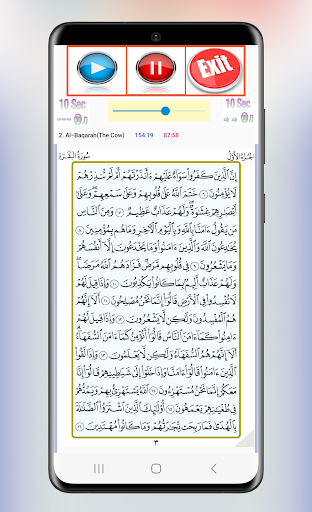 Exit
10 Sec
10 Sec
2. Al-Baqarah(The Cow) 154:19 87:58
سُورَةُ البَقَرَةِ الجُزْءُ الأَوَّلُ
إِنَّ ٱلَّذِينَ كَفَرُوا۟ سَوَآءٌ عَلَيْهِمْ ءَأَنذَرْتَهُمْ أَمْ لَمْ تُنذِرْهُمْ
لَا يُؤْمِنُونَ ٦ خَتَمَ ٱللَّهُ عَلَىٰ قُلُوبِهِمْ وَعَلَىٰ سَمْعِهِمْ وَعَلَىٰٓ
أَبْصَٰرِهِمْ غِشَٰوَةٌ وَلَهُمْ عَذَابٌ عَظِيمٌ ٧ وَمِنَ ٱلنَّاسِ
مَن يَقُولُ ءَامَنَّا بِٱللَّهِ وَبِٱلْيَوْمِ ٱلْءَاخِرِ وَمَا هُم بِمُؤْمِنِينَ ٨
يُخَٰدِعُونَ ٱللَّهَ وَٱلَّذِينَ ءَامَنُوا۟ وَمَا يَخْدَعُونَ إِلَّآ أَنفُسَهُمْ
وَمَا يَشْعُرُونَ ٩ فِى قُلُوبِهِم مَّرَضٌ فَزَادَهُمُ ٱللَّهُ مَرَضًا
وَلَهُمْ عَذَابٌ أَلِيمٌۢ بِمَا كَانُوا۟ يَكْذِبُونَ ١٠ وَإِذَا قِيلَ لَهُمْ
لَا تُفْسِدُوا۟ فِى ٱلْأَرْضِ قَالُوٓا۟ إِنَّمَا نَحْنُ مُصْلِحُونَ ١١ أَلَآ إِنَّهُمْ
هُمُ ٱلْمُفْسِدُونَ وَلَٰكِن لَّا يَشْعُرُونَ ١٢ وَإِذَا قِيلَ لَهُمْ
ءَامِنُوا۟ كَمَآ ءَامَنَ ٱلنَّاسُ قَالُوٓا۟ أَنُؤْمِنُ كَمَآ ءَامَنَ ٱلسُّفَهَآءُ
أَلَآ إِنَّهُمْ هُمُ ٱلسُّفَهَآءُ وَلَٰكِن لَّا يَعْلَمُونَ ١٣ وَإِذَا لَقُوا۟
ٱلَّذِينَ ءَامَنُوا۟ قَالُوٓا۟ ءَامَنَّا وَإِذَا خَلَوْا۟ إِلَىٰ شَيَٰطِينِهِمْ قَالُوٓا۟ إِنَّا
مَعَكُمْ إِنَّمَا نَحْنُ مُسْتَهْزِءُونَ ١٤ ٱللَّهُ يَسْتَهْزِئُ بِهِمْ وَيَمُدُّهُمْ
فِى طُغْيَٰنِهِمْ يَعْمَهُونَ ١٥ أُو۟لَٰٓئِكَ ٱلَّذِينَ ٱشْتَرَوُا۟ ٱلضَّلَٰلَةَ
بِٱلْهُدَىٰ فَمَا رَبِحَت تِّجَٰرَتُهُمْ وَمَا كَانُوا۟ مُهْتَدِينَ ١٦
٣